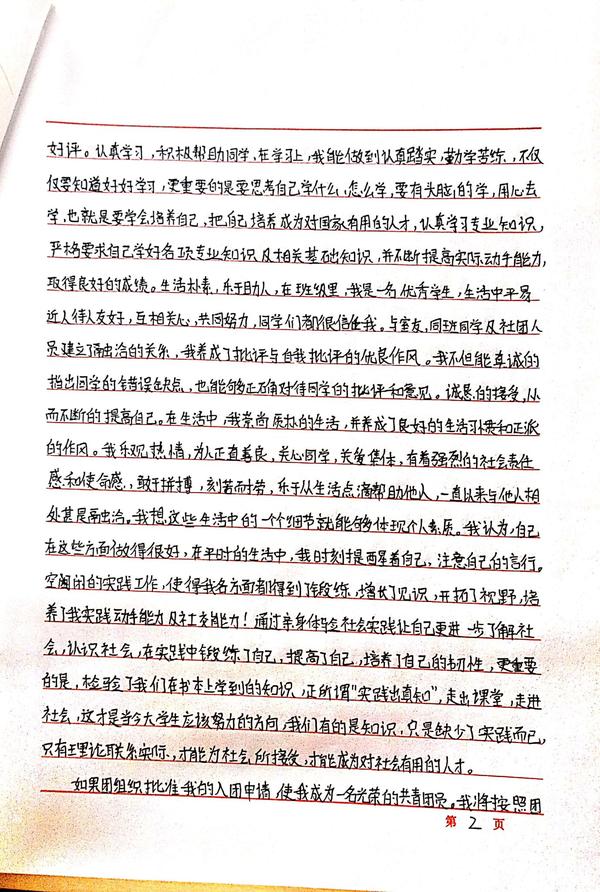 好评。认真学习，积极帮助同学，在学习上，我能做到认真踏实，勤学苦练，不仅
仅要知道好好学习，更重要的是要思考自己学什么，怎么学，要有头脑的学，用心去
学，也就是要学会培养自己，把自己培养成为对国家有用的人才，认真学习专业知识，
严格要求自己学好各项专业知识及相关基础知识，并不断提高实际动手能力，
取得良好的成绩。生活朴素，乐于助人，在班级里，我是一名优秀学生，生活中平易
近人待人友好，互相关心，共同努力，同学们都很信任我。与室友，同班同学及社团人
员建立了融洽的关系，我养成了批评与自我批评的优良作风。我不但能真诚的
指出同学的错误缺点，也能够正确对待同学的批评和意见。诚恳的接受，从
而不断的提高自己。在生活中，我崇尚质朴的生活，并养成了良好的生活习惯和正派
的作风。我乐观，热情，为人正直善良，关心同学，关爱集体，有着强烈的社会责任
感和使命感，敢于拼搏，刻苦耐劳，乐于从生活点滴帮助他人，一直以来与他人相
处甚是融洽。我想这些生活中的一个个细节就能够体现个人素质。我认为，自己
在这些方面做得很好，在平时的生活中，我时刻提醒着自己，注意自己的言行。
空闲的实践工作，使得我各方面都得到了锻练，增长了见识，开拓了视野，培
养了我实践动手能力及社交能力！通过亲身体验社会实践让自己更进一步了解社
会，认识社会，在实践中锻练了自己，提高了自己，培养了自己的韧性，更重要
的是，检验了我们在书本上学到的知识，正所谓“实践出真知”，走出课堂，走进
社会，这才是当今大学生应该努力的方向，我们有的是知识，只是缺少了实践而已，
只有理论联系实际，才能为社会所接受，才能成为对社会有用的人才。
如果团组织批准我的入团申请，使我成为一名光荣的共青团员。我将按照团
第 2 页